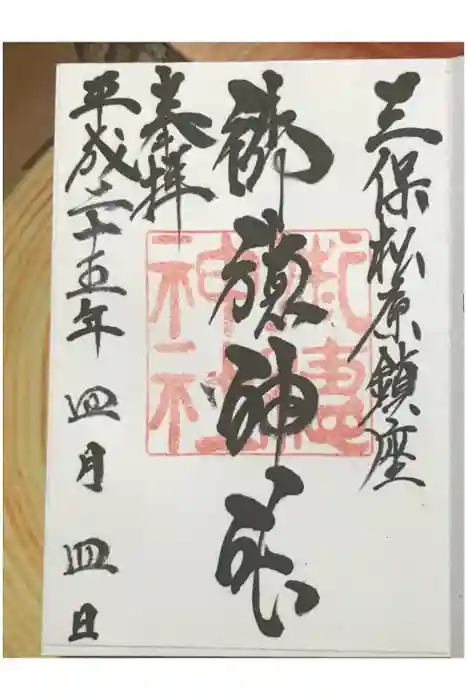 三保松原鎮座
御穂神社
奉拝
平成二十五年 四月 四日